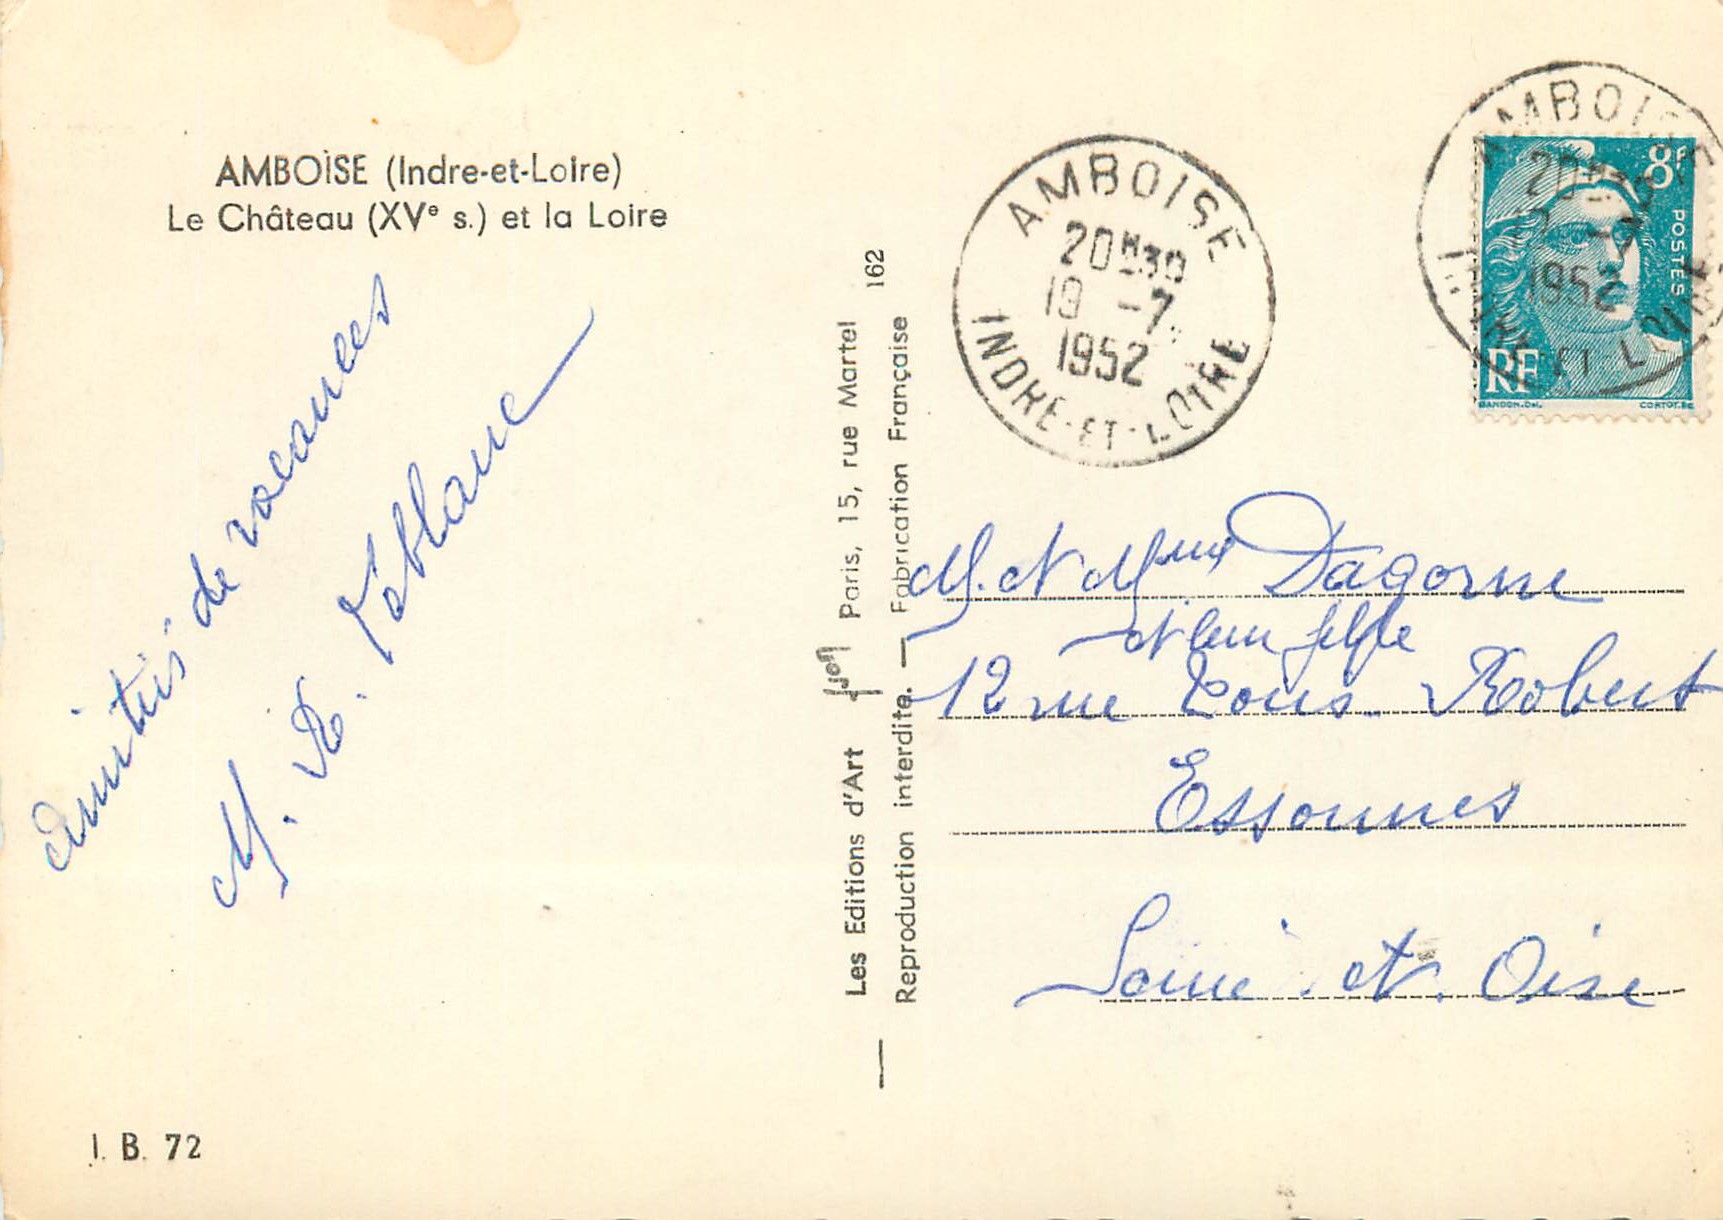 AMBOISE (Indre-et-Loire)
Le Château (XVe s.) et la Loire
amitiés de vacances
M. R. Leblanc
I. B. 72
Les Editions d'Art Yvon Paris, 15, rue Martel 162
Reproduction interdite. — Fabrication Française
AMBOISE
20H30
19 -7
1952
INDRE-ET-LOIRE
AMBOISE
20H30
1952
INDRE-ET-LOIRE
8F
POSTES
RF
GANDON.Del. CORTOT.Sc
M. et Mme Dagorne
et leur fille
12 rue Louis Robert
Essonnes
Seine et Oise